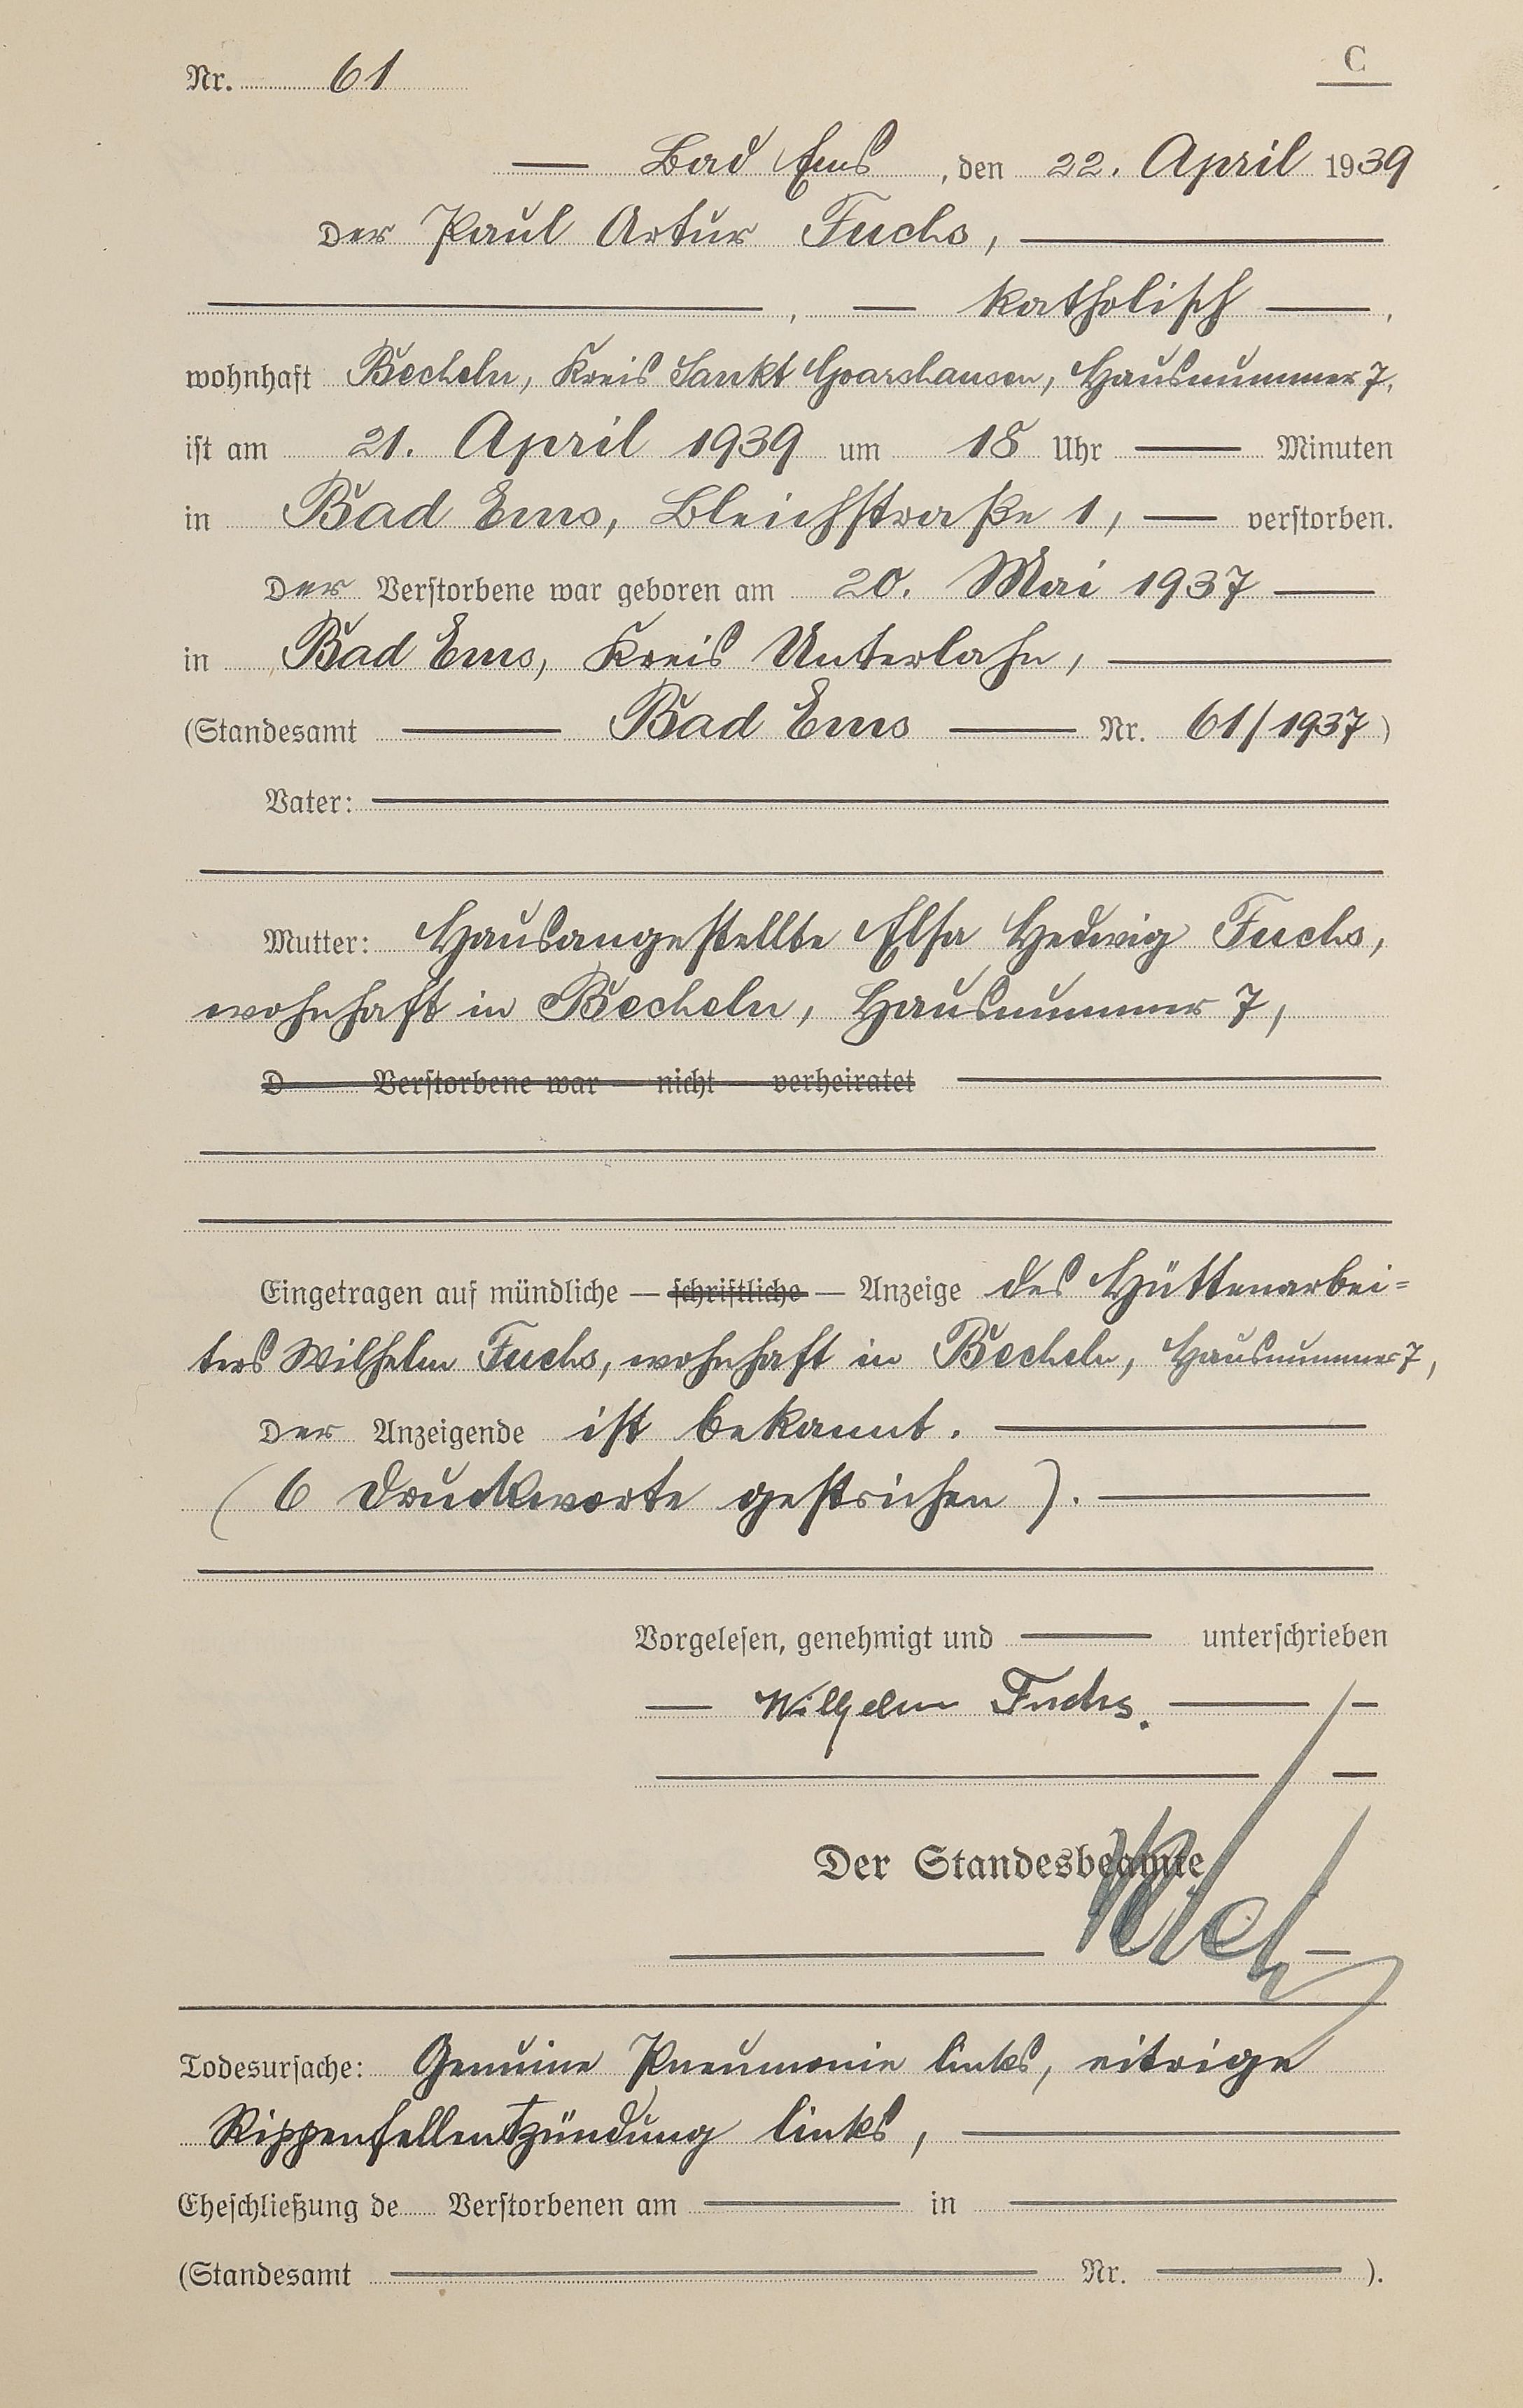 Nr. 61
C
— Bad Ems, den 22. April 1939
Der Paul Artur Fuchs, —
—, — katholisch —,
wohnhaft Becheln, Kreis Sankt Goarshausen, Hausnummer 7,
ist am 21. April 1939 um 18 Uhr — Minuten
in Bad Ems, Bleichstraße 1, — verstorben.
Der Verstorbene war geboren am 20. Mai 1937 —
in Bad Ems, Kreis Unterlahn, —
(Standesamt — Bad Ems — Nr. 61/1937)
Vater: —
Mutter: Hausangestellte Elsa Hedwig Fuchs,
wohnhaft in Becheln, Hausnummer 7,
D Verstorbene war — nicht — verheiratet —
Eingetragen auf mündliche — schriftliche — Anzeige des Hüttenarbei=
ters Wilhelm Fuchs, wohnhaft in Becheln, Hausnummer 7,
Der Anzeigende ist bekannt. —
(6 Druckworte gestrichen). —
Vorgelesen, genehmigt und — unterschrieben
— Wilhelm Fuchs. —
Der Standesbeamte
Todesursache: Genuine Pneumonie links, eitrige
Rippenfellentzündung links, —
Eheschließung de Verstorbenen am — in —
(Standesamt — Nr. — ).